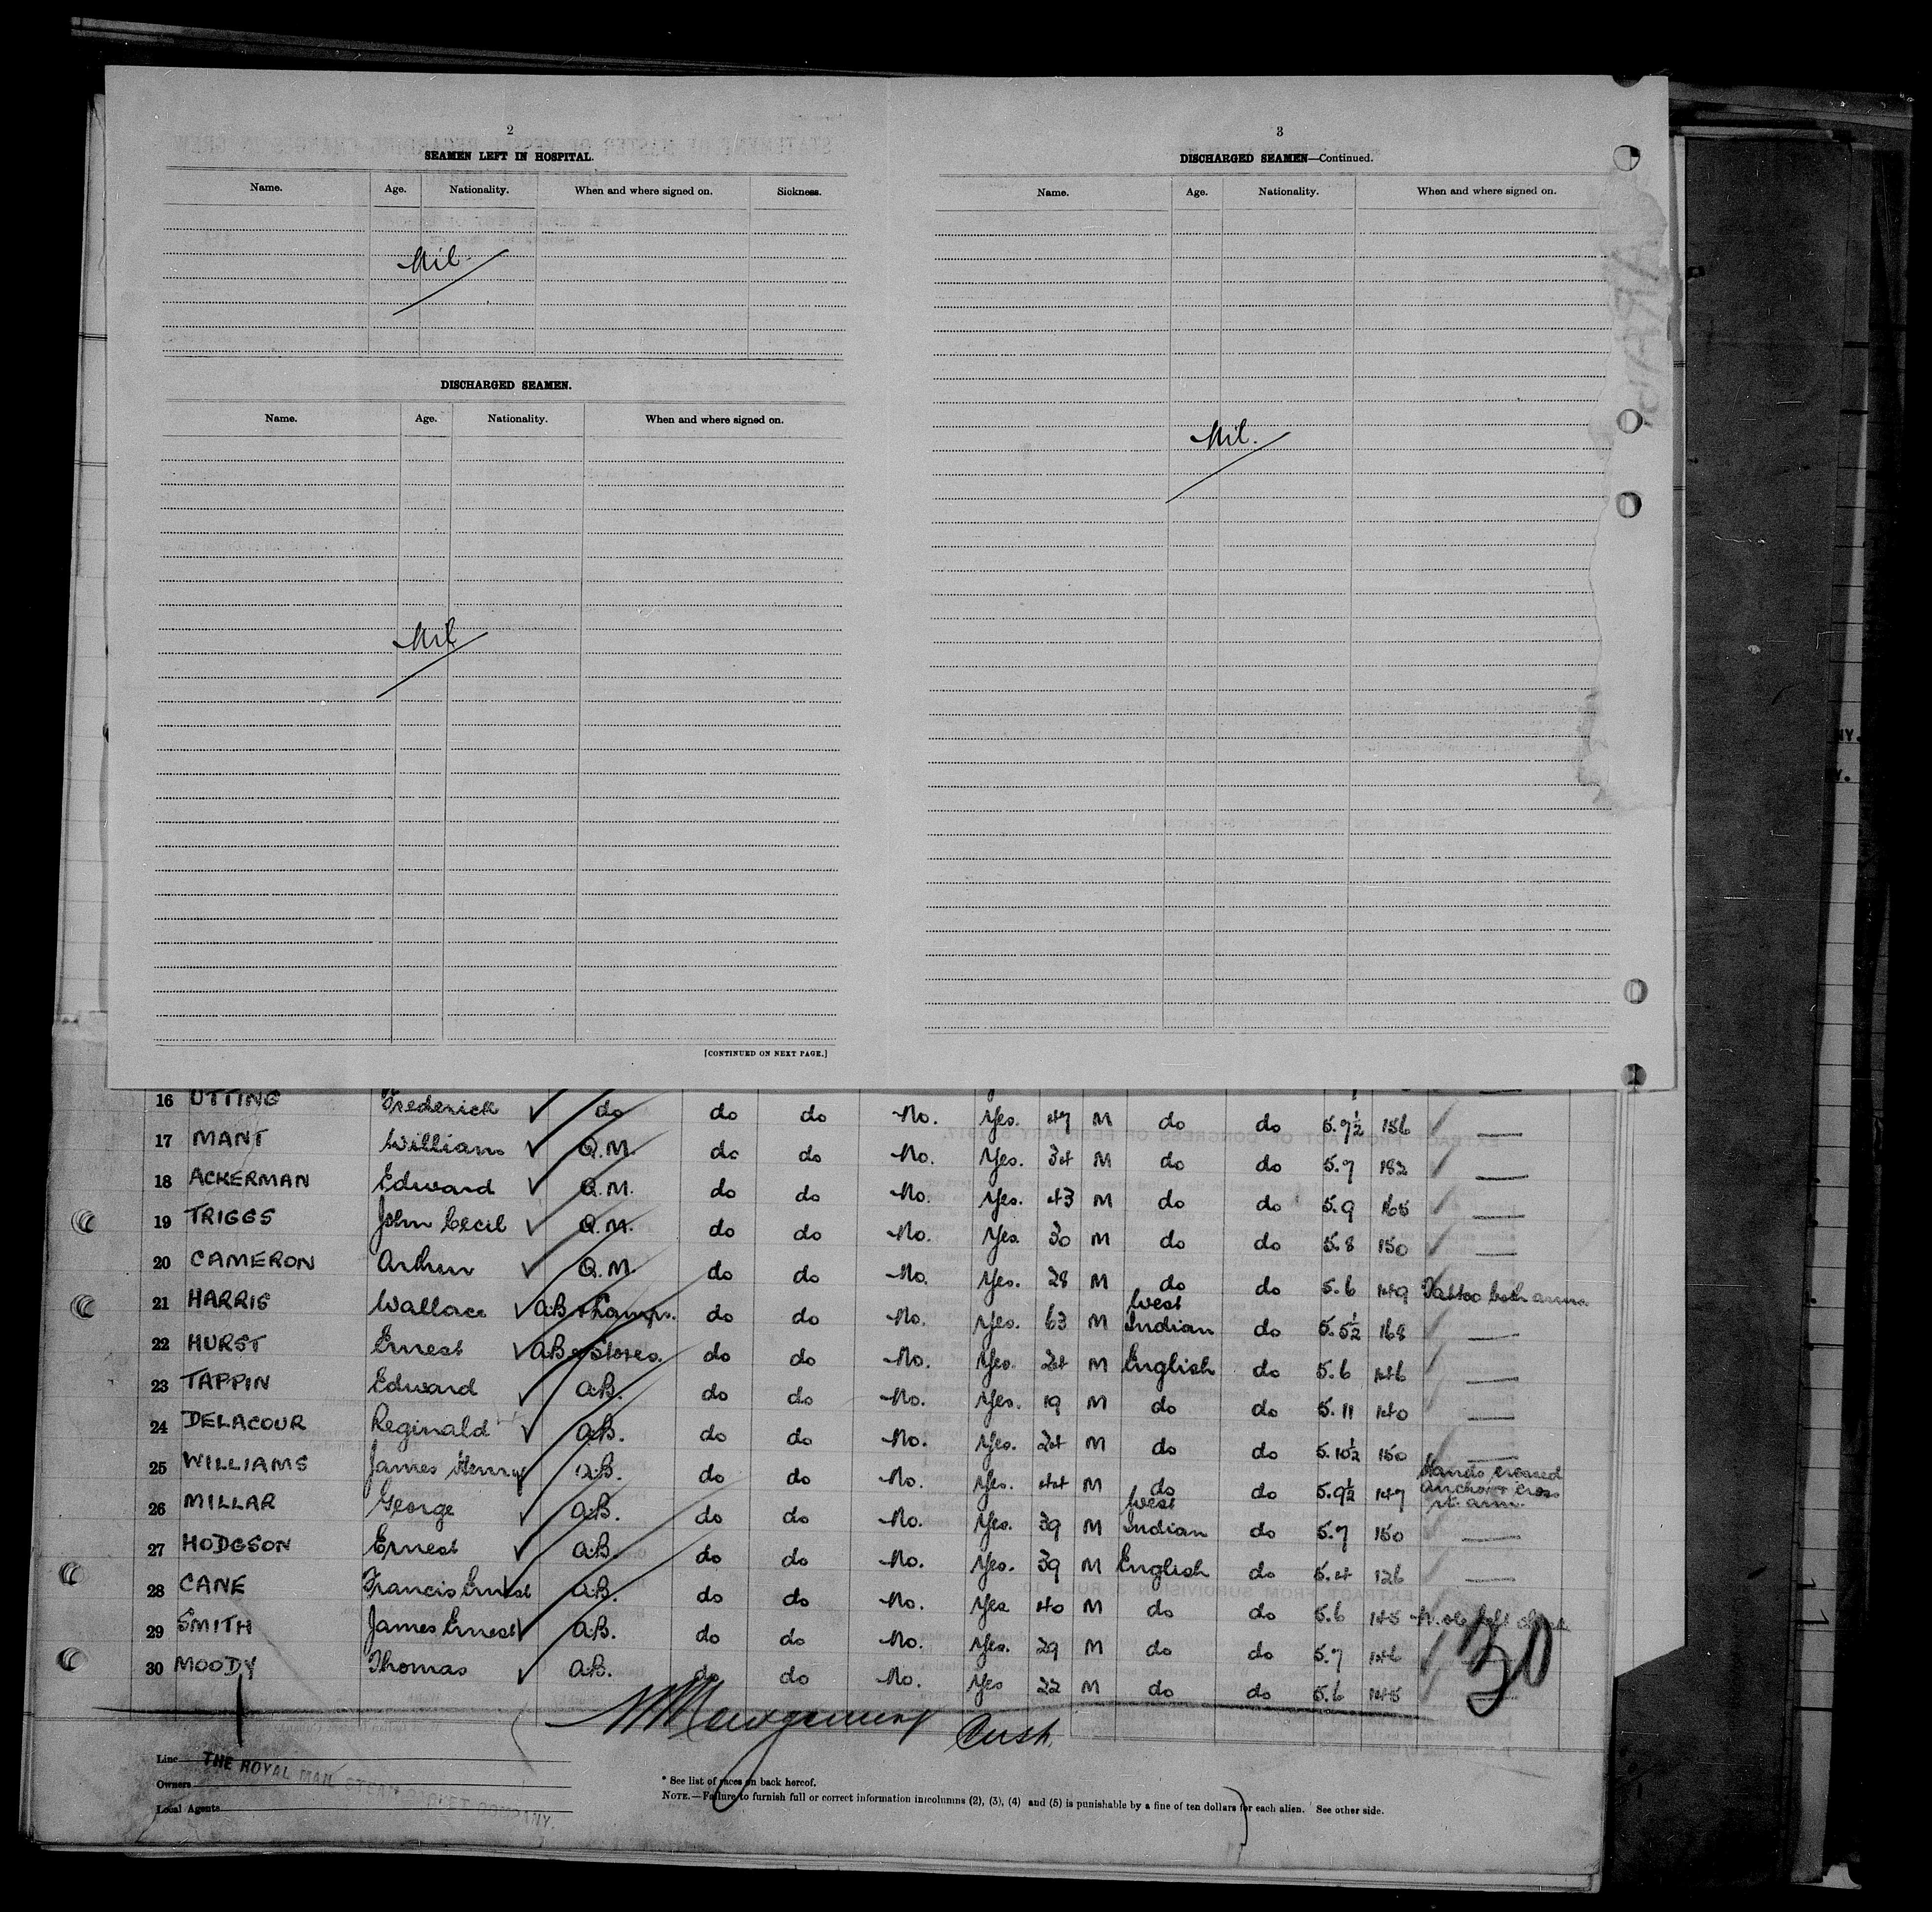 2
SEAMEN LEFT IN HOSPITAL.
Name. Age. Nationality. When and where signed on. Sickness.
Nil.
DISCHARGED SEAMEN.
Name. Age. Nationality. When and where signed on.
Nil
[CONTINUED ON NEXT PAGE.]
3
DISCHARGED SEAMEN—Continued.
Name. Age. Nationality. When and where signed on.
Nil.
16 UTTING Frederick do do do No. Yes. 47 M do do 5.9½ 156
17 MANT William Q.M. do do No. Yes. 34 M do do 5.7 182
18 ACKERMAN Edward Q.M. do do No. Yes. 43 M do do 5.9 165
19 TRIGGS John Cecil Q.M. do do No. Yes. 30 M do do 5.8 150
20 CAMERON Arthur Q.M. do do No. Yes. 28 M do do 5.6 149 Tattoo both arms
21 HARRIS Wallace A.B. & Lamps. do do No. Yes. 63 M West Indian do 5.5½ 168
22 HURST Ernest A.B. & Stores. do do No. Yes. 24 M English do 5.6 146
23 TAPPIN Edward A.B. do do No. Yes. 19 M do do 5.11 140
24 DELACOUR Reginald A.B. do do No. Yes. 24 M do do 5.10½ 150
25 WILLIAMS James Henry A.B. do do No. Yes. 44 M do do 5.9½ 147 Hands crossed anchor & cross rt. arm.
26 MILLAR George A.B. do do No. Yes. 39 M West Indian do 5.7 150
27 HODGSON Ernest A.B. do do No. Yes. 39 M English do 5.4 126
28 CANE Francis Ernest A.B. do do No. Yes 40 M do do 5.6 145
29 SMITH James Ernest A.B. do do No. Yes. 29 M do do 5.7 146
30 MOODY Thomas A.B. do do No. Yes 22 M do do 5.6 145
30
Line THE ROYAL MAIL STEAM PACKET COMPANY.
Owners
Local Agents
* See list of races on back hereof.
NOTE.—Failure to furnish full or correct information in columns (2), (3), (4) and (5) is punishable by a fine of ten dollars for each alien. See other side.